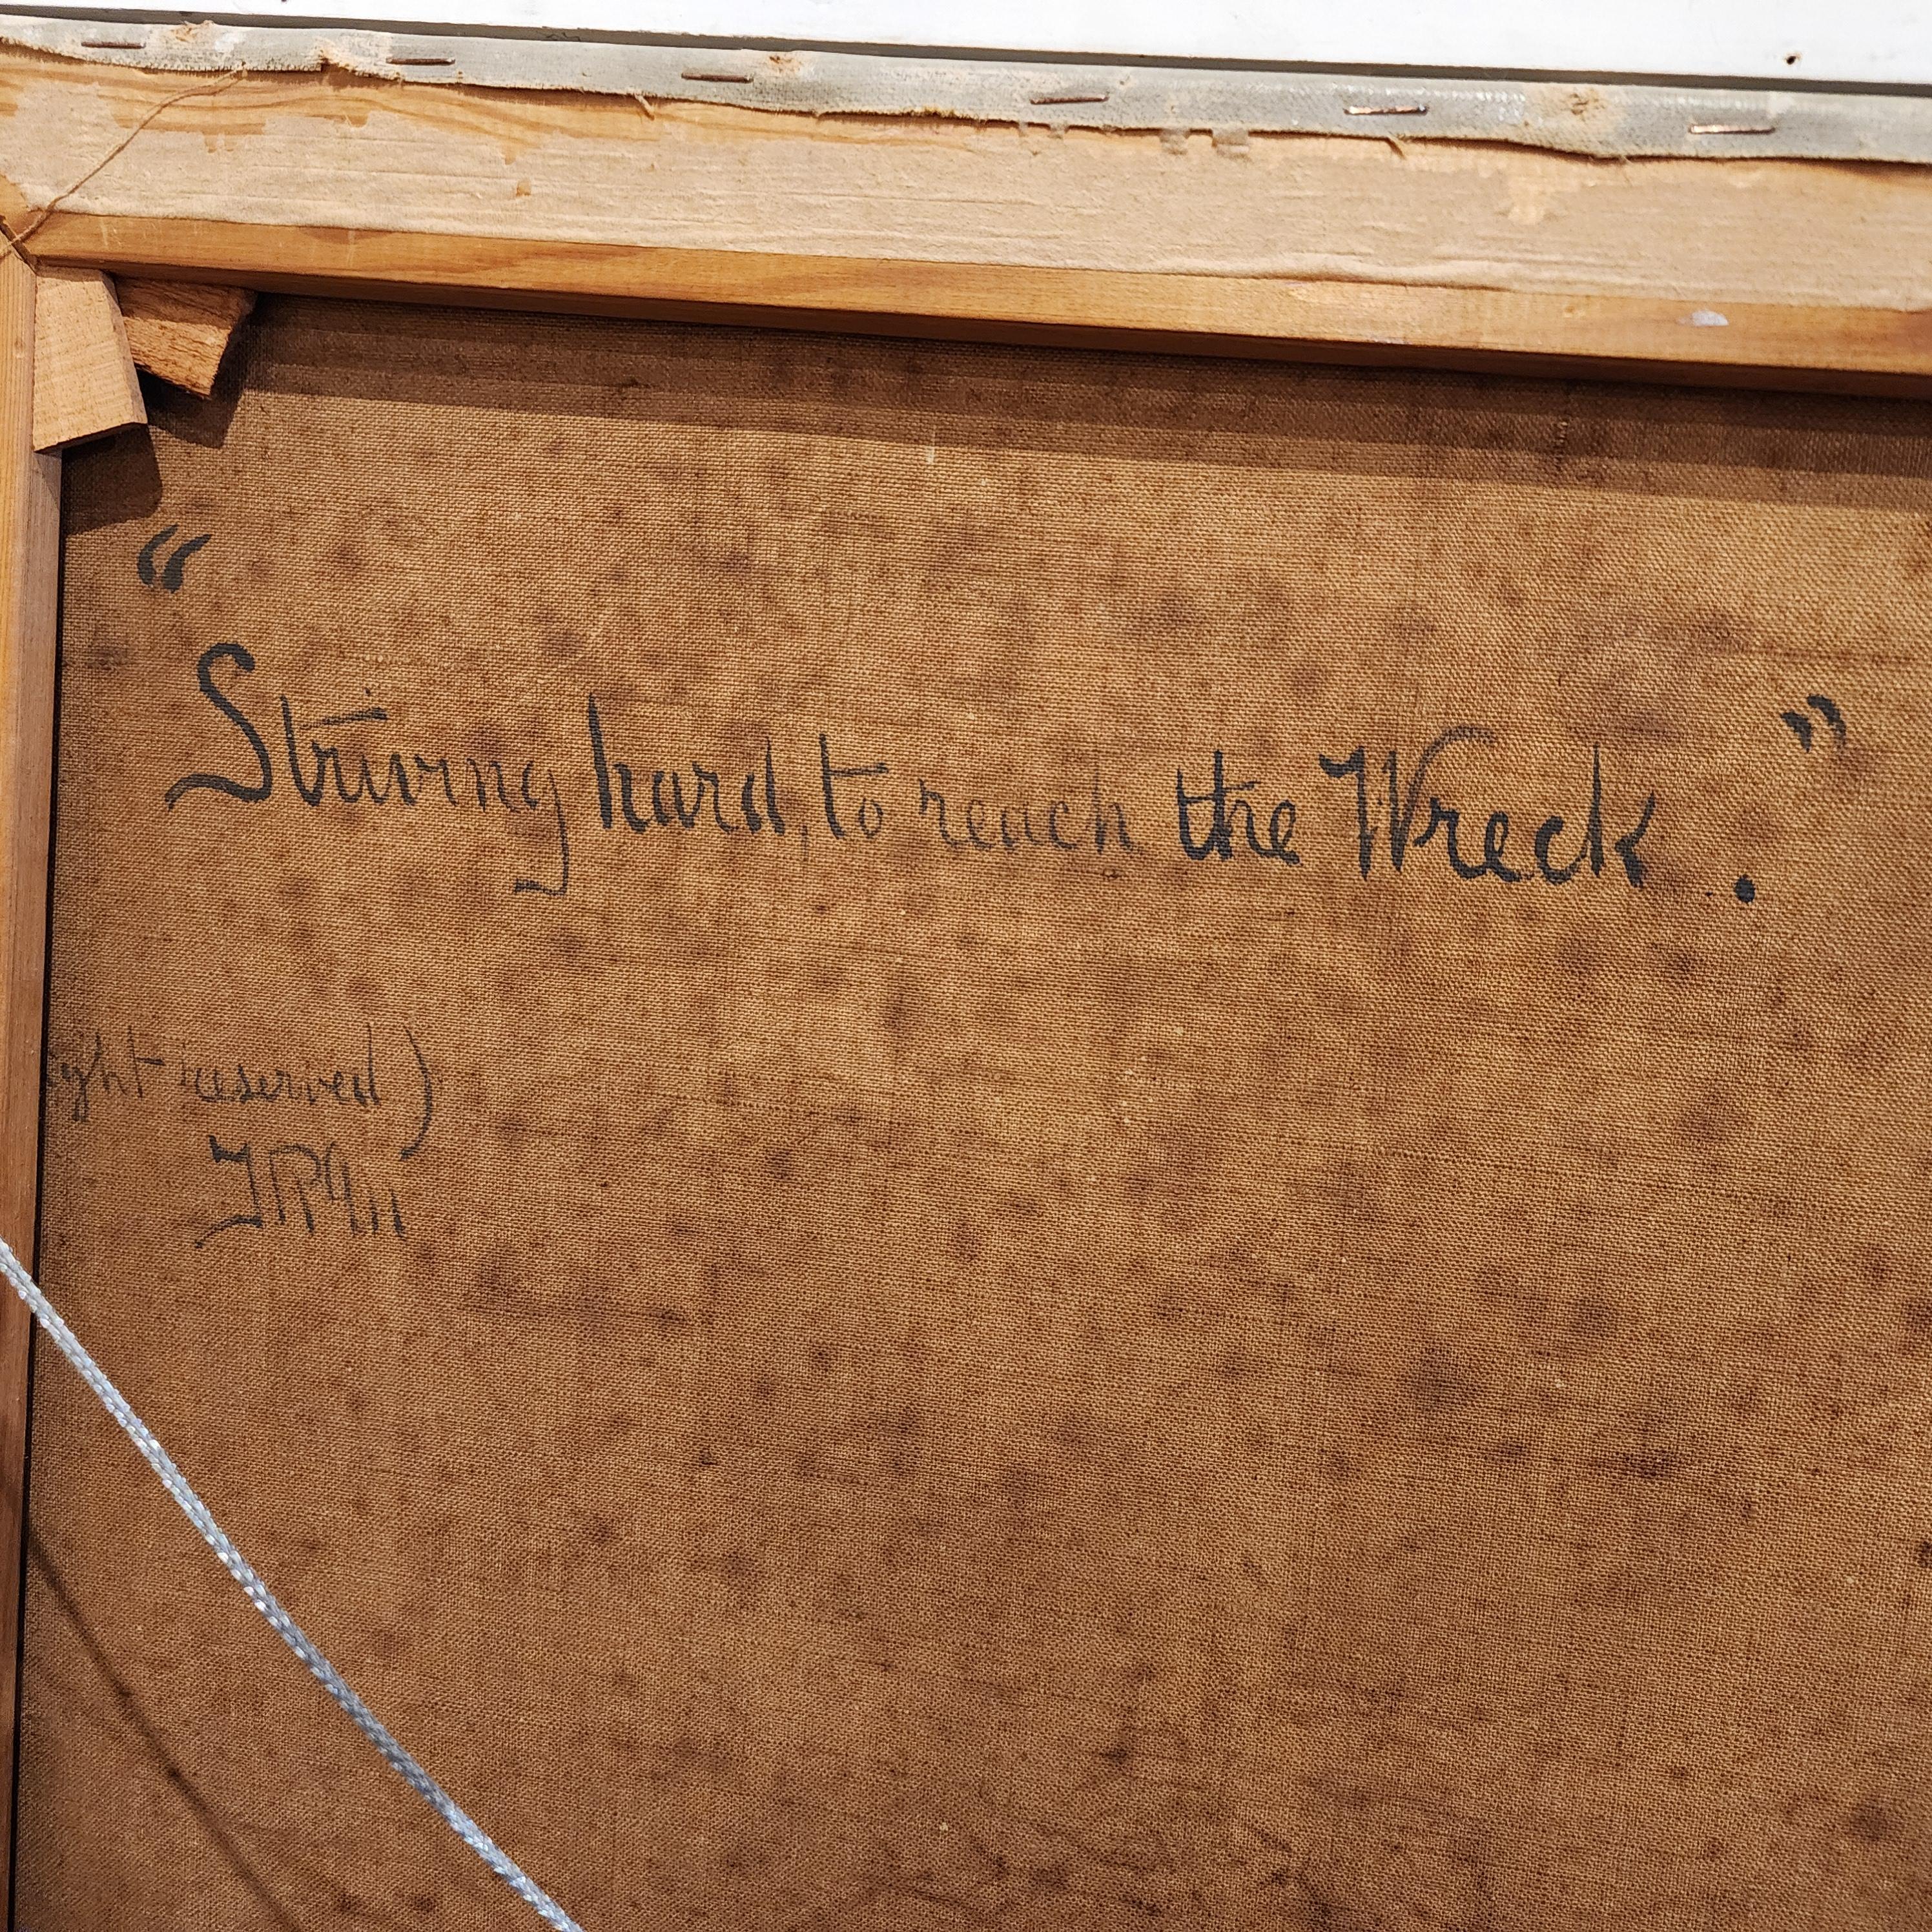 “
Striving hard, to reach the Wreck. ”
ight reserved)